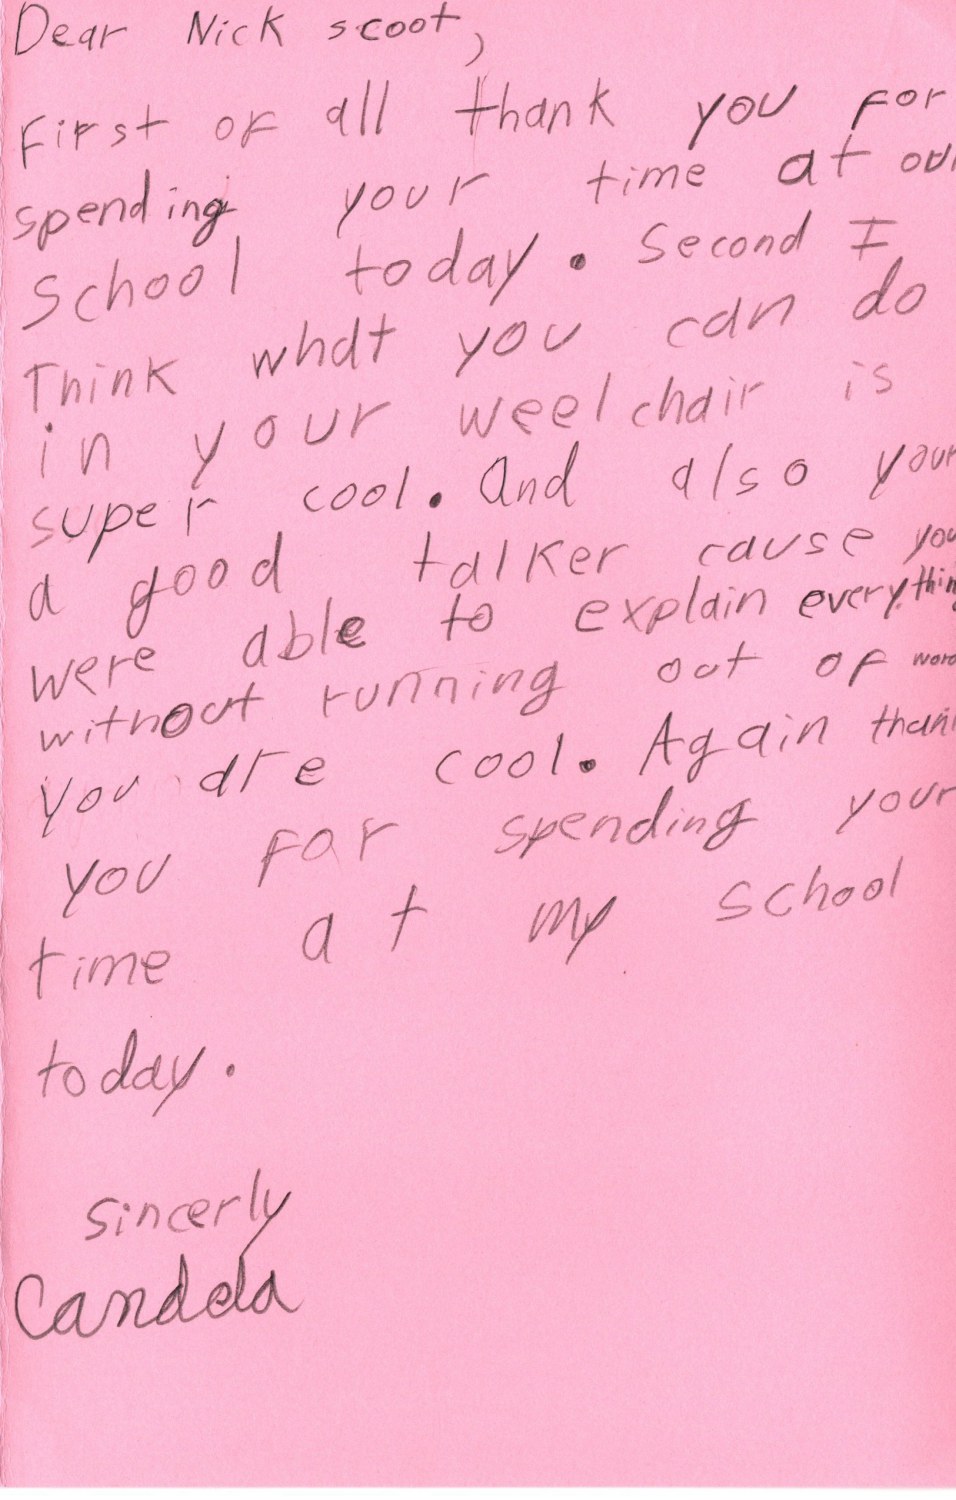 Dear Nick scoot,
First of all thank you for
spending your time at our
School today. Second I
Think what you can do
in your weelchair is
super cool. And also your
a good talker cause you
were able to explain everything
without running out of word
you are cool. Again thank
you for spending your
time at my school
today.
sincerly
Candela